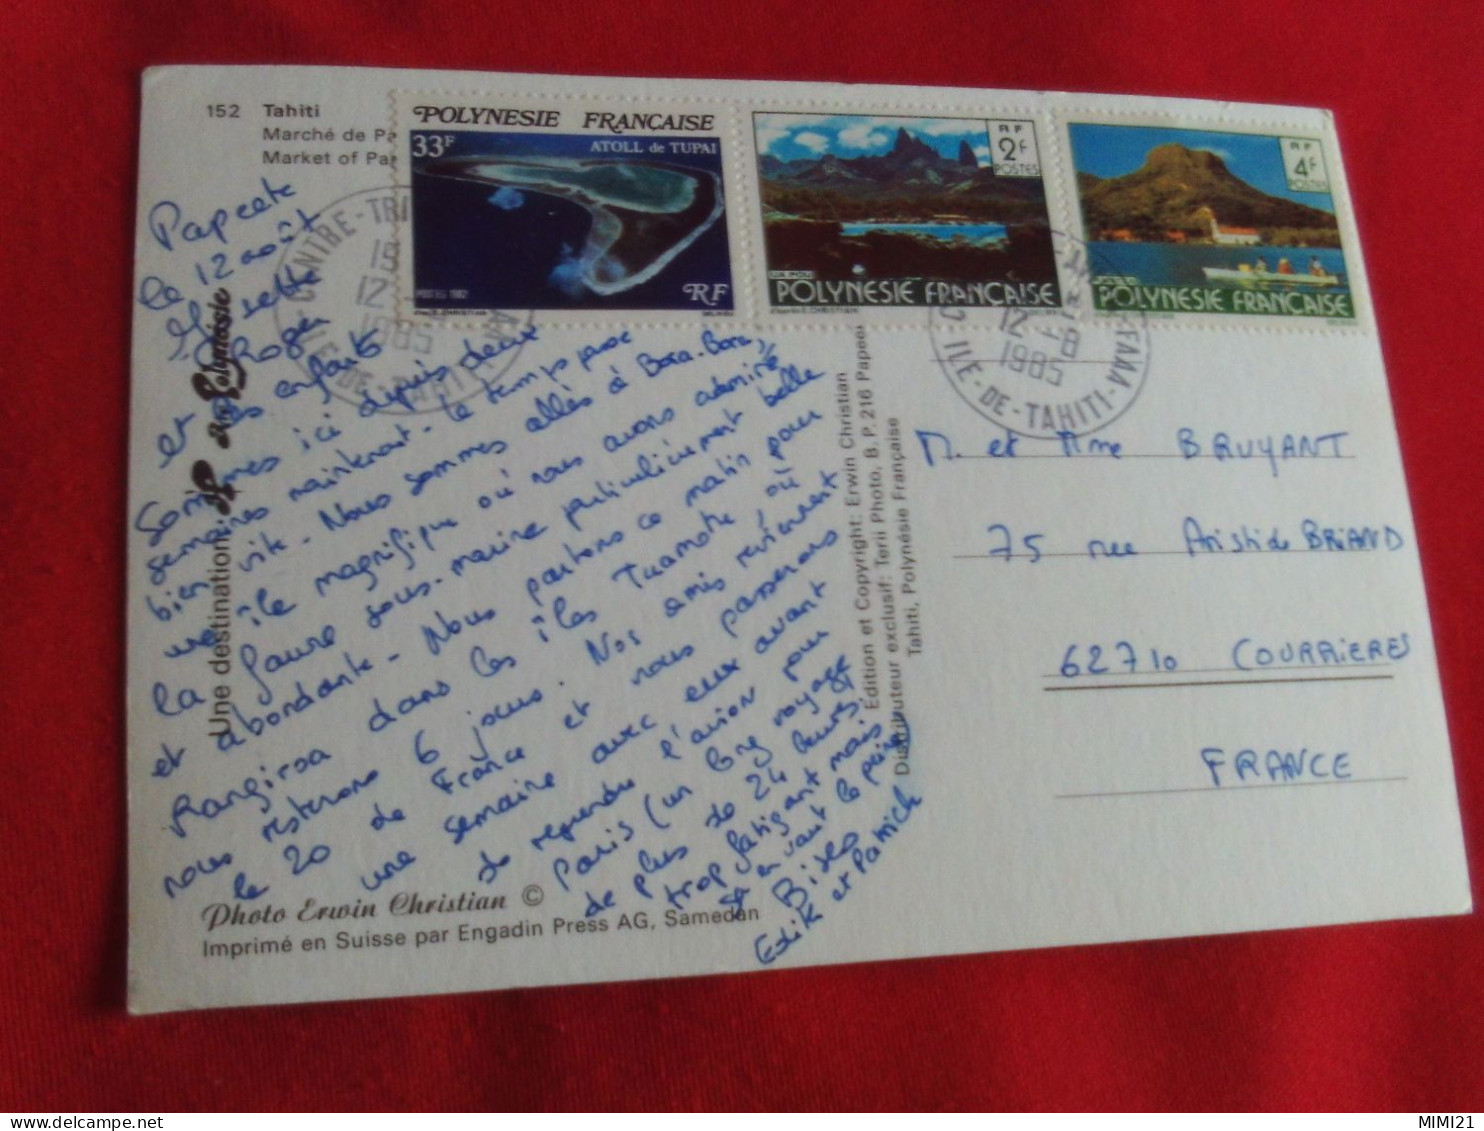 152 Tahiti
Marché de Pa
Market of Pa
POLYNESIE FRANÇAISE
33F
ATOLL de TUPAI
POSTES 1982
RF
RF
2F
POSTES
UA POU
POLYNESIE FRANÇAISE
RF
4F
POSTES
POLYNESIE FRANÇAISE
CENTRE-TRI
18
12
1985
ILE-DE-TAHITI
12 -8
1985
ILE-DE-TAHITI-FAAA
Papeete
le 12 août
Josette
Roger
et les enfants
Sommes ici depuis deux
semaines maintenant. le temps passe
bien vite. Nous sommes allés à Bora-Bora,
une île magnifique où nous avons admiré
la faune sous-marine particulièrement belle
et abondante. Nous partons ce matin pour
Rangiroa dans les îles Tuamotu, où
nous resterons 6 jours. Nos amis reviennent
le 20 de France et nous passerons
une semaine avec eux avant
de reprendre l'avion pour
Paris (un long voyage
de plus de 24 heures,
trop fatigant mais
ça en vaut la peine)
Bises
et Patrick
Une destination Air Polynésie
Photo Erwin Christian ©
Imprimé en Suisse par Engadin Press AG, Samedan
Edition et Copyright: Erwin Christian
Distributeur exclusif: Terii Photo, B.P. 216 Papee
Tahiti, Polynésie Française
M. et Mme BRUYANT
75 rue Aristide BRIAND
62710 COURRIERES
FRANCE
MIMI21